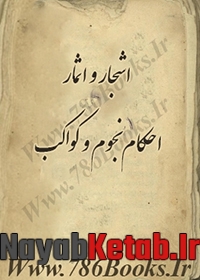 www.786Books.Ir
اشجار و اثمار
احکام نجوم و کواکب
www.786Books.Ir
NayabKetab.Ir
www.786Books.Ir